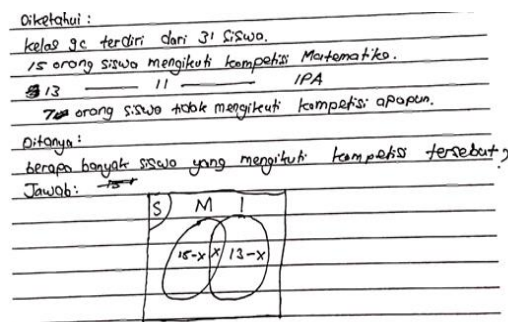 Diketahui :
kelas 9c terdiri dari 31 siswa.
15 orang siswa mengikuti kompetisi Martematika.
13 —— 11 —— IPA
7 orang siswa tidak mengikuti kompetisi apapun.
Ditanya :
berapa banyak siswa yang mengikuti kompetisi tersebut?
Jawab :
S M I
15-x x 13-x